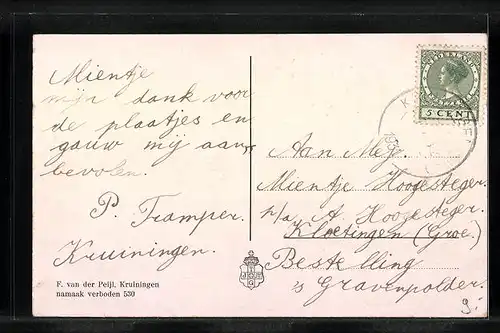 Mientje
mijn dank voor
de plaatjes en
gauw mij aan
bevolen.
P. Tramper.
Kruiningen.
F. van der Peijl, Kruiningen
namaak verboden 530
NEDERLAND
5 CENT
193
Aan Mej.
Mientje Hoogesteger.
p/a A. Hoogesteger.
Kloetingen (Goe.)
Bestelling
's Gravenpolder.